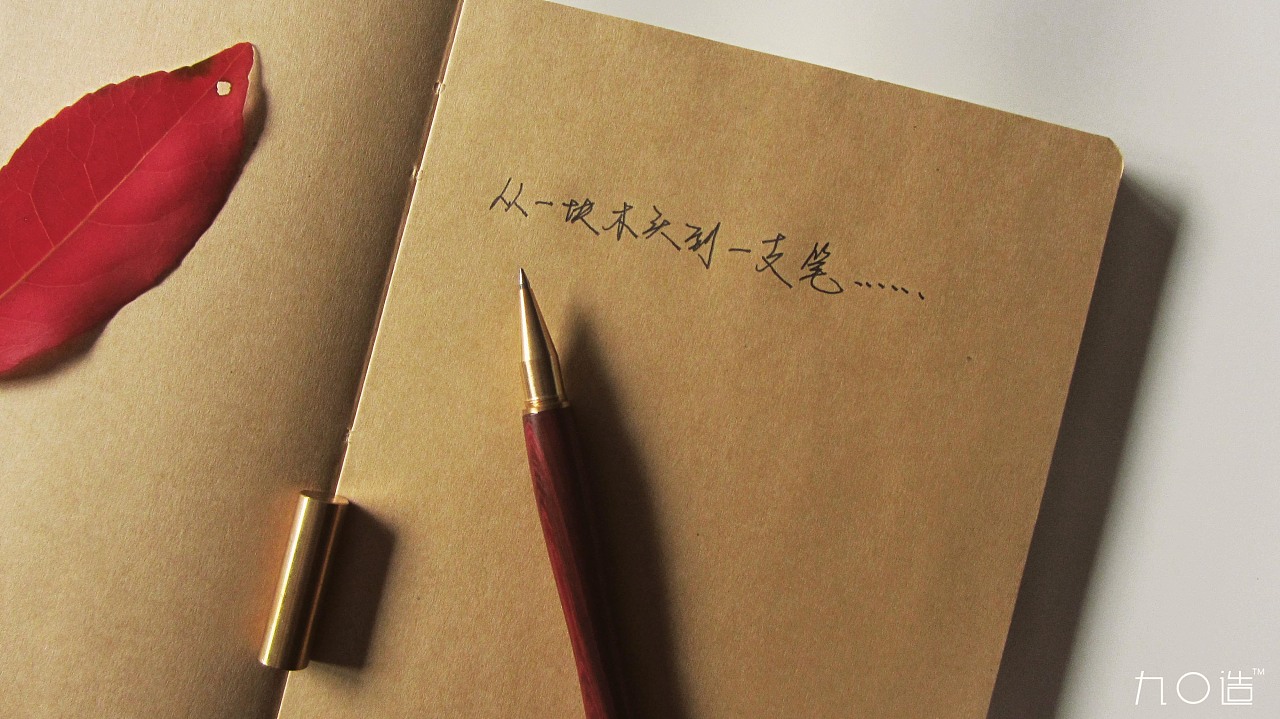 从一块木头到一支笔……
九〇造™